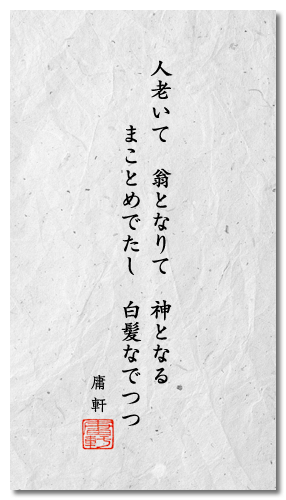 人老いて　翁となりて　神となる
まことめでたし　白髪なでつつ
庸軒